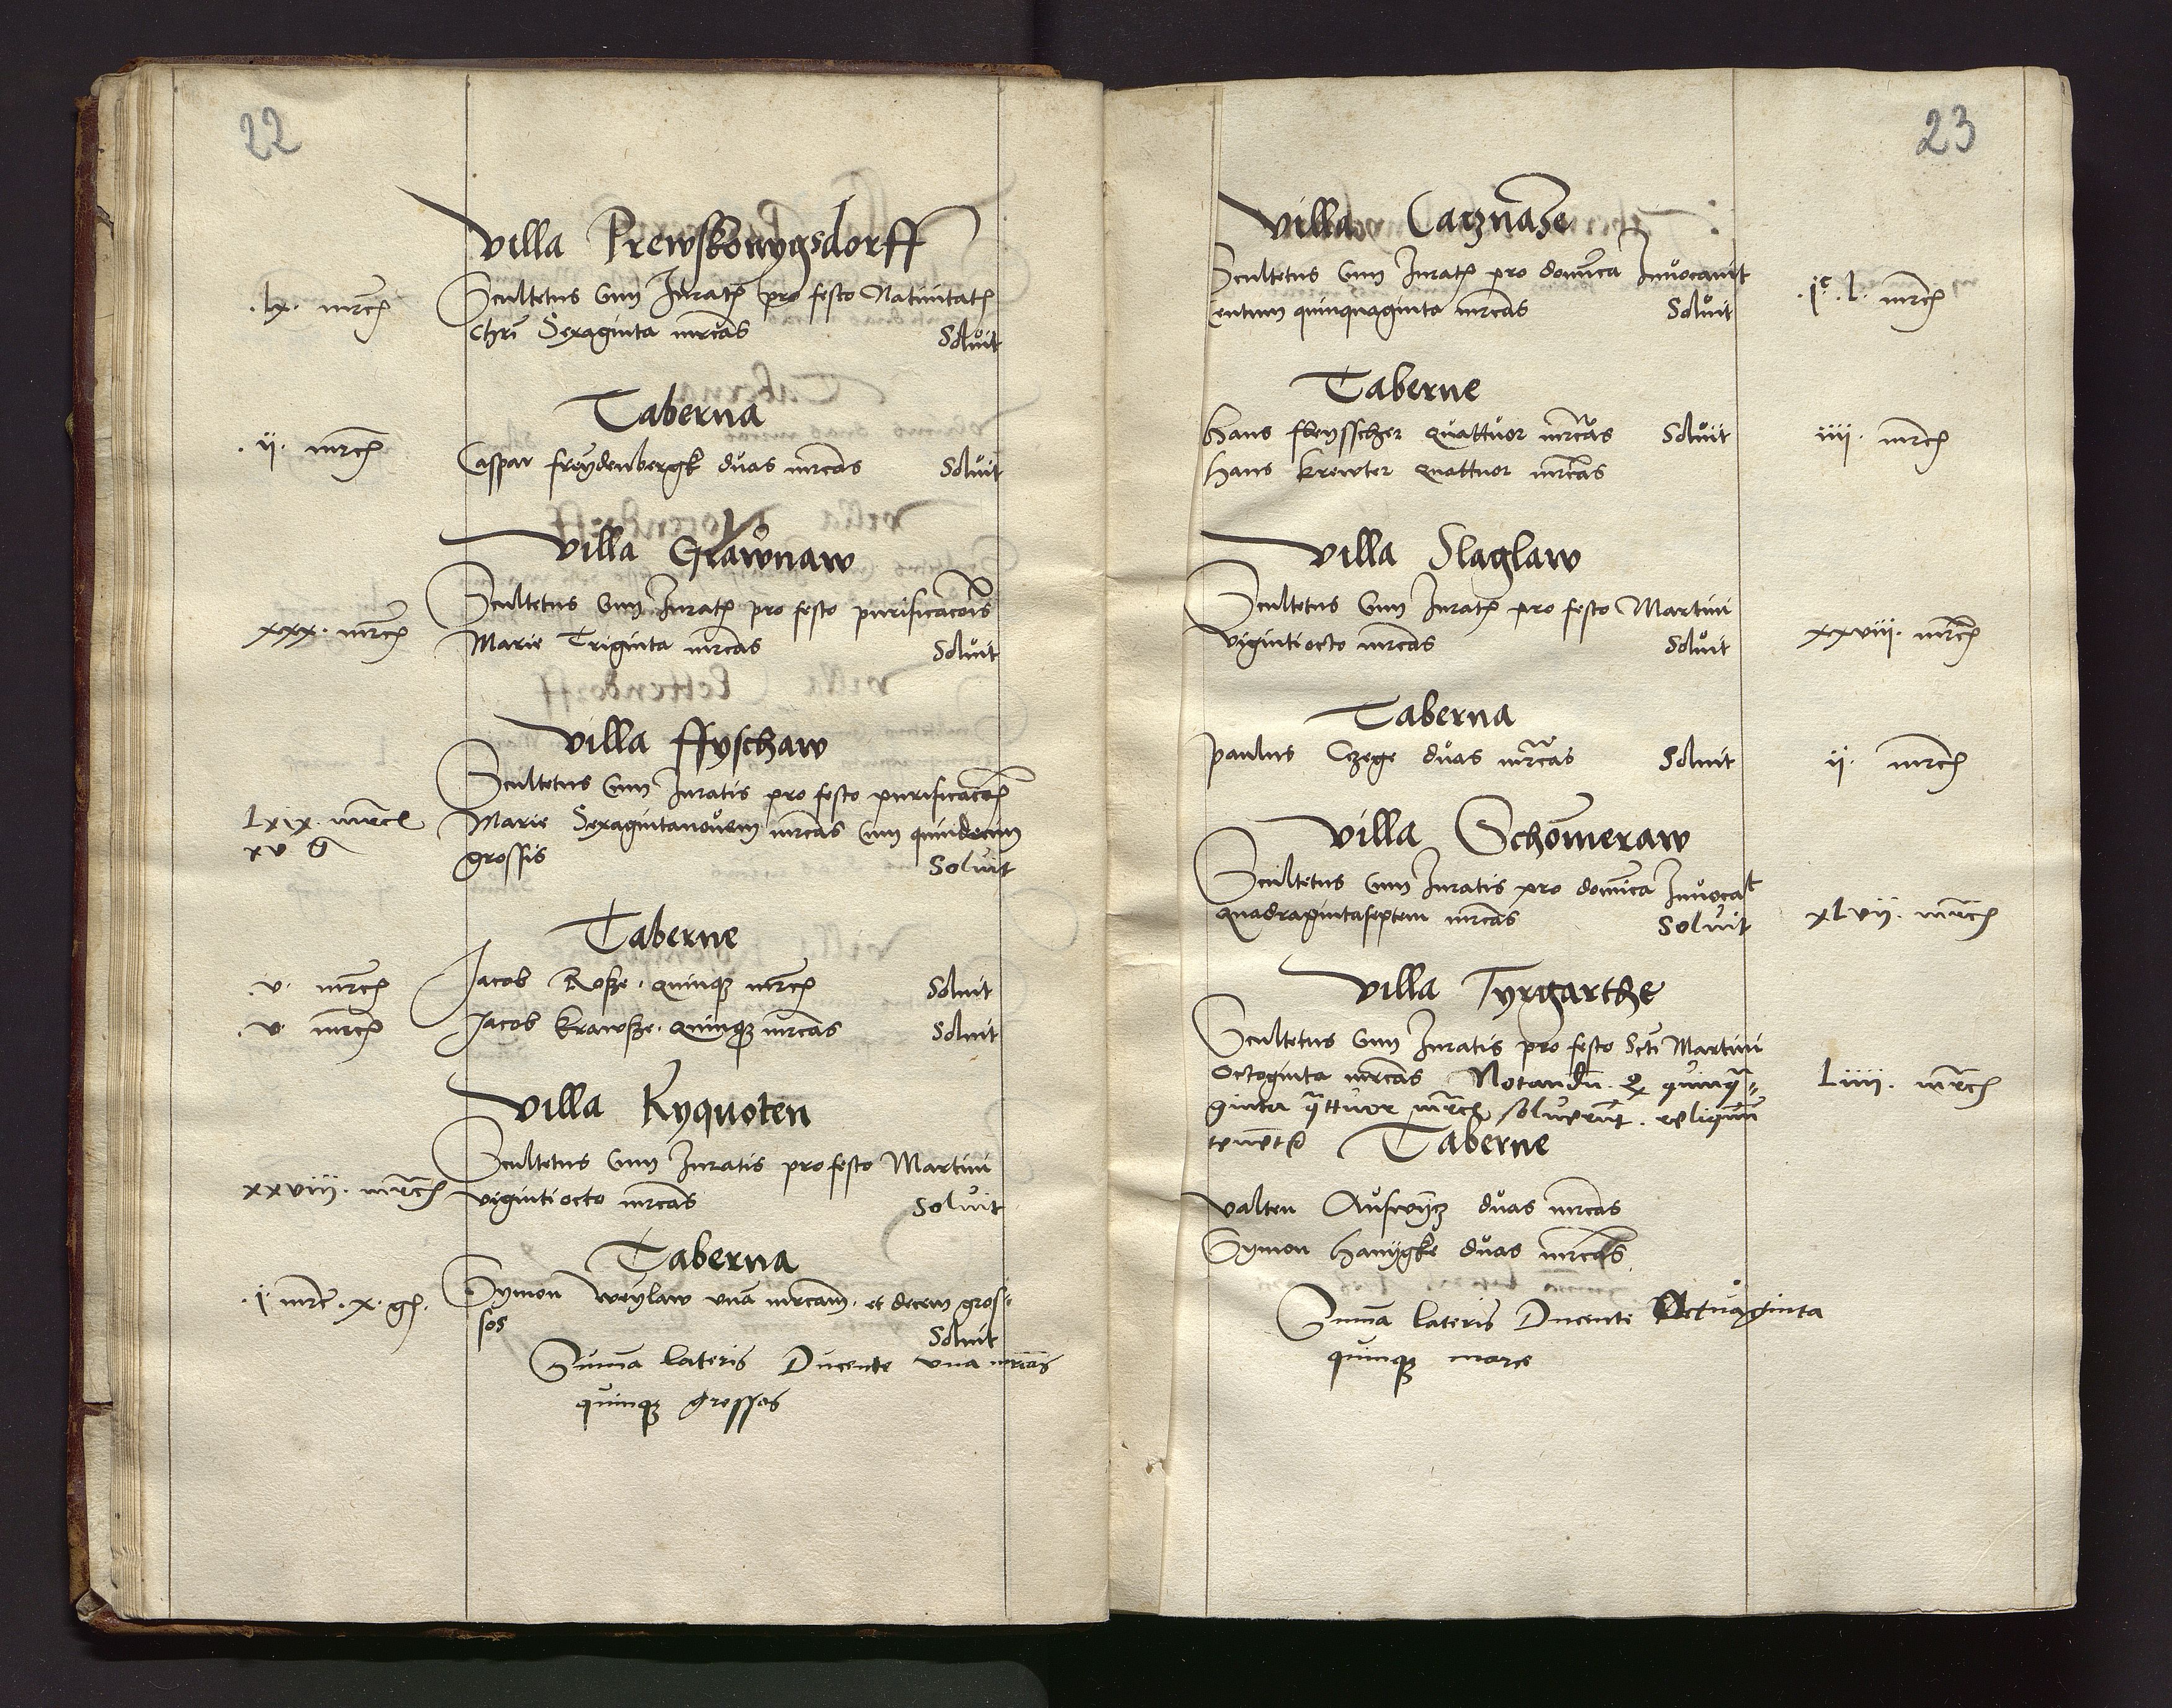 22
villa Prewskonygsdorff
.lx. mrcꝭ Scultetus Cum Juratꝭ pro festo Natiuitatꝭ
Chri Sexaginta mrcas Soluit
Taberna
.ij. mrcꝭ Caspar freydenbergk duas mrcas Soluit
villa Grawnaw
Scultetus Cum Juratꝭ pro festo purificacois
xxx. mrcꝭ Marie Triginta mrcas Soluit
villa ffyschaw
Scultetus Cum Juratis pro festo purificacoꝭ
Lxix. mrcꝭ Marie Sexagintanouem mrcas Cum quindecim
xv g grossis Soluit
Taberne
.v. mrcꝭ Jacob Rosze. quinqꝫ mrcꝭ Soluit
.v. mrcꝭ Jacob Krawsze. quinqꝫ mrcas Soluit
villa Kyquoten
Scultetus Cum Juratis pro festo Martini
xxviii. mrcꝭ vigintiocto mrcas Soluit
Taberna
.i. mrc. x. gꝭ. Symon Weylaw vna mrcam. et decem gros⸗
sos Soluit
Summa lateris Ducente vna mrcas
quinqꝫ grossos
23
villa Cacznase
Scultetus Cum Juratꝭ pro domica Inuocauit
Centum quinquaginta mrcas Soluit .jᶜ.l. mrcꝭ
Taberne
Hans fleysscher quattuor mrcas Soluit iiij. mrcꝭ
Hans Krewter quattuor mrcas
villa Slaglaw
Scultetus Cum Juratꝭ pro festo Martini
vigintiocto mrcas Soluit xxviii. mrcꝭ
Taberna
paulus Czege duas mrcas Soluit ij. mrcꝭ
villa Schomeraw
Scultetus Cum Juratis pro domica Inuocat
quadragintaseptem mrcas Soluit xLvij. mrcꝭ
villa Tyrgarthe
Scultetus Cum Juratis pro festo Scti Martini
Octoginta mrcas Notandu. ꝙ quinqua⸗ Liiij. mrcꝭ
ginta qttuor mrcꝭ soluerut. reliquu
tenet Taberne
valten duas mrcas
Symon Hanygke duas mrcas
Summa lateris Ducente Octuaginta
quinqꝫ marc